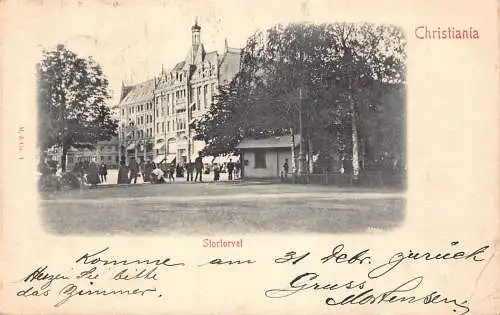 Christiania
Stortorvet
Komme am 31 Debr. zurück
Heizen Sie bitte
das Zimmer.
Gruss Mortensen